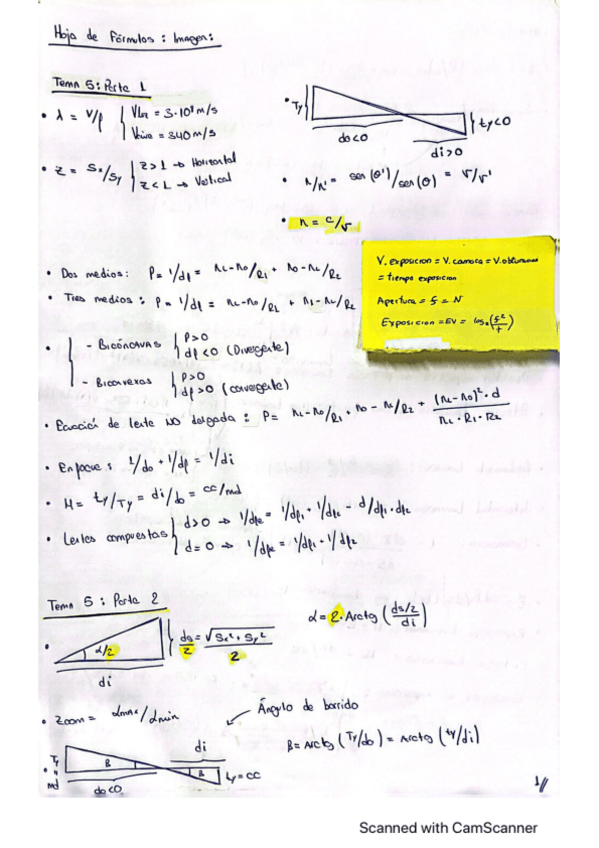 Hoja de Fórmulas : Imagen:
Tema 5: Parte 1
• λ = V/f { Vluz = 3·10⁸ m/s
Vaire = 340 m/s
• Z = Sx/Sy { Z > 1 → Horizontal
Z < 1 → Vertical
• Ty ty<0
do<0 di>0
• n/n' = sen(θ')/sen(θ) = v/v'
• n = c/v
V. exposicion = V. camara = V. obturador
= tiempo exposicion
Apertura = f = N
Exposicion = EV = log₂(f²/t)
• Dos medios: P = 1/df = nL-n0/R1 + n0-nL/R2
• Tres medios: P = 1/df = nL-n0/R1 + n1-nL/R2
• { - Bicóncavas { P>0
df<0 (Divergente)
- Biconvexas { P>0
df>0 (convergente)
• Ecuación de lente NO delgada: P = nL-n0/R1 + n0-nL/R2 + (nL-n0)²·d / nL·R1·R2
• Enfoque: 1/do + 1/df = 1/di
• M = ty/Ty = di/do = cc/md
• Lentes compuestas { d>0 → 1/dfe = 1/df1 + 1/df2 - d/df1·df2
d=0 → 1/dfe = 1/df1 + 1/df2
Tema 5: Parte 2
• α/2 ds/2 = √Sx²+Sy² / 2
di
α = 2·Arctg (ds/2 / di)
• Zoom = αmax/αmin
Ángulo de barrido
B = Arctg (Ty/do) = Arctg (ty/di)
• Ty = md B di B ty = cc
do<0
1//
Scanned with CamScanner